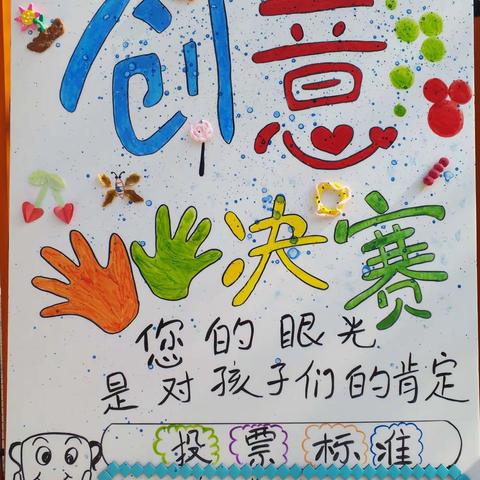 创意
决赛
您的眼光
是对孩子们的肯定
投票标准